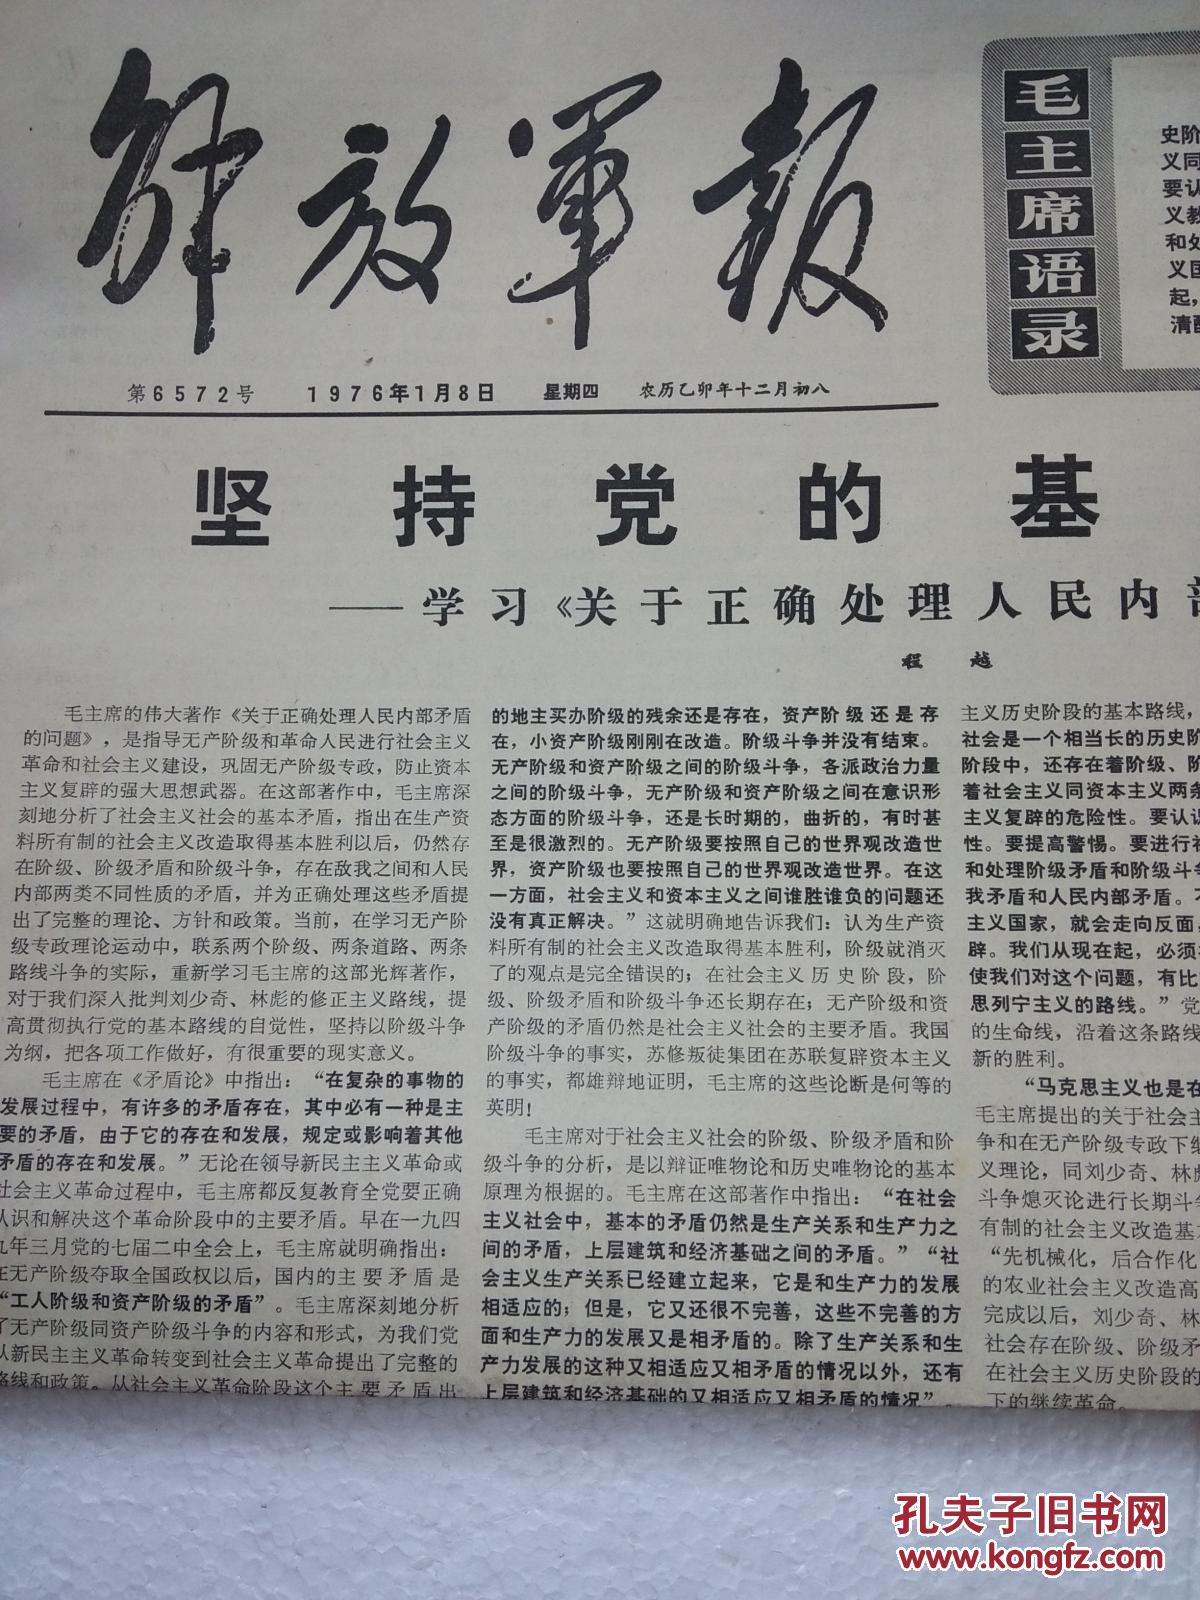 解放军报
第6572号 1976年1月8日 星期四 农历乙卯年十二月初八
毛主席语录
史阶
义同
要认
义教
和处
义国
起，
清醒
坚持党的基
——学习《关于正确处理人民内部
程越
毛主席的伟大著作《关于正确处理人民内部矛盾
的问题》，是指导无产阶级和革命人民进行社会主义
革命和社会主义建设，巩固无产阶级专政，防止资本
主义复辟的强大思想武器。在这部著作中，毛主席深
刻地分析了社会主义社会的基本矛盾，指出在生产资
料所有制的社会主义改造取得基本胜利以后，仍然存
在阶级、阶级矛盾和阶级斗争，存在敌我之间和人民
内部两类不同性质的矛盾，并为正确处理这些矛盾提
出了完整的理论、方针和政策。当前，在学习无产阶
级专政理论运动中，联系两个阶级、两条道路、两条
路线斗争的实际，重新学习毛主席的这部光辉著作，
对于我们深入批判刘少奇、林彪的修正主义路线，提
高贯彻执行党的基本路线的自觉性，坚持以阶级斗争
为纲，把各项工作做好，有很重要的现实意义。
毛主席在《矛盾论》中指出：“在复杂的事物的
发展过程中，有许多的矛盾存在，其中必有一种是主
要的矛盾，由于它的存在和发展，规定或影响着其他
矛盾的存在和发展。”无论在领导新民主主义革命或
社会主义革命过程中，毛主席都反复教育全党要正确
认识和解决这个革命阶段中的主要矛盾。早在一九四
九年三月党的七届二中全会上，毛主席就明确指出：
在无产阶级夺取全国政权以后，国内的主要矛盾是
“工人阶级和资产阶级的矛盾”。毛主席深刻地分析
了无产阶级同资产阶级斗争的内容和形式，为我们党
从新民主主义革命转变到社会主义革命提出了完整的
路线和政策。从社会主义革命阶段这个主要矛盾出
的地主买办阶级的残余还是存在，资产阶级还是存
在，小资产阶级刚刚在改造。阶级斗争并没有结束。
无产阶级和资产阶级之间的阶级斗争，各派政治力量
之间的阶级斗争，无产阶级和资产阶级之间在意识形
态方面的阶级斗争，还是长时期的，曲折的，有时甚
至是很激烈的。无产阶级要按照自己的世界观改造世
界，资产阶级也要按照自己的世界观改造世界。在这
一方面，社会主义和资本主义之间谁胜谁负的问题还
没有真正解决。”这就明确地告诉我们：认为生产资
料所有制的社会主义改造取得基本胜利，阶级就消灭
了的观点是完全错误的；在社会主义历史阶段，阶
级、阶级矛盾和阶级斗争还长期存在；无产阶级和资
产阶级的矛盾仍然是社会主义社会的主要矛盾。我国
阶级斗争的事实，苏修叛徒集团在苏联复辟资本主义
的事实，都雄辩地证明，毛主席的这些论断是何等的
英明！
毛主席对于社会主义社会的阶级、阶级矛盾和阶
级斗争的分析，是以辩证唯物论和历史唯物论的基本
原理为根据的。毛主席在这部著作中指出：“在社会
主义社会中，基本的矛盾仍然是生产关系和生产力之
间的矛盾，上层建筑和经济基础之间的矛盾。”“社
会主义生产关系已经建立起来，它是和生产力的发展
相适应的；但是，它又还很不完善，这些不完善的方
面和生产力的发展又是相矛盾的。除了生产关系和生
产力发展的这种又相适应又相矛盾的情况以外，还有
上层建筑和经济基础的又相适应又相矛盾的情况”。
主义历史阶段的基本路线，
社会是一个相当长的历史阶
阶段中，还存在着阶级、阶
着社会主义同资本主义两条
主义复辟的危险性。要认识
性。要提高警惕。要进行社
和处理阶级矛盾和阶级斗争
我矛盾和人民内部矛盾。不
主义国家，就会走向反面，
辟。我们从现在起，必须
使我们对这个问题，有比
思列宁主义的路线。”党
的生命线，沿着这条路线
新的胜利。
“马克思主义也是在
毛主席提出的关于社会主
争和在无产阶级专政下继
义理论，同刘少奇、林彪
斗争熄灭论进行长期斗争
有制的社会主义改造基
“先机械化，后合作化
的农业社会主义改造高
完成以后，刘少奇、林
社会存在阶级、阶级矛
在社会主义历史阶段的
下的继续革命。
孔夫子旧书网
www.kongfz.com